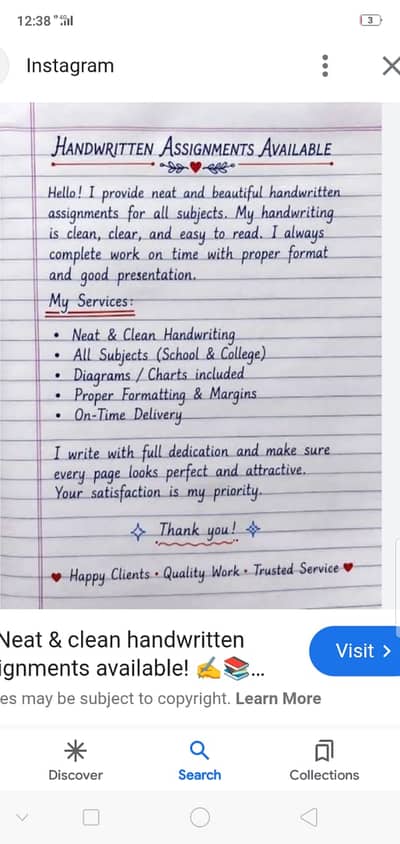 12:38
3
Instagram
HANDWRITTEN ASSIGNMENTS AVAILABLE
Hello! I provide neat and beautiful handwritten
assignments for all subjects. My handwriting
is clean, clear, and easy to read. I always
complete work on time with proper format
and good presentation.
My Services:
• Neat & Clean Handwriting
• All Subjects (School & College)
• Diagrams / Charts included
• Proper Formatting & Margins
• On-Time Delivery
I write with full dedication and make sure
every page looks perfect and attractive.
Your satisfaction is my priority.
Thank you!
♥ Happy Clients • Quality Work • Trusted Service ♥
Neat & clean handwritten
ignments available! ✍️📚...
Visit
es may be subject to copyright. Learn More
Discover
Search
Collections